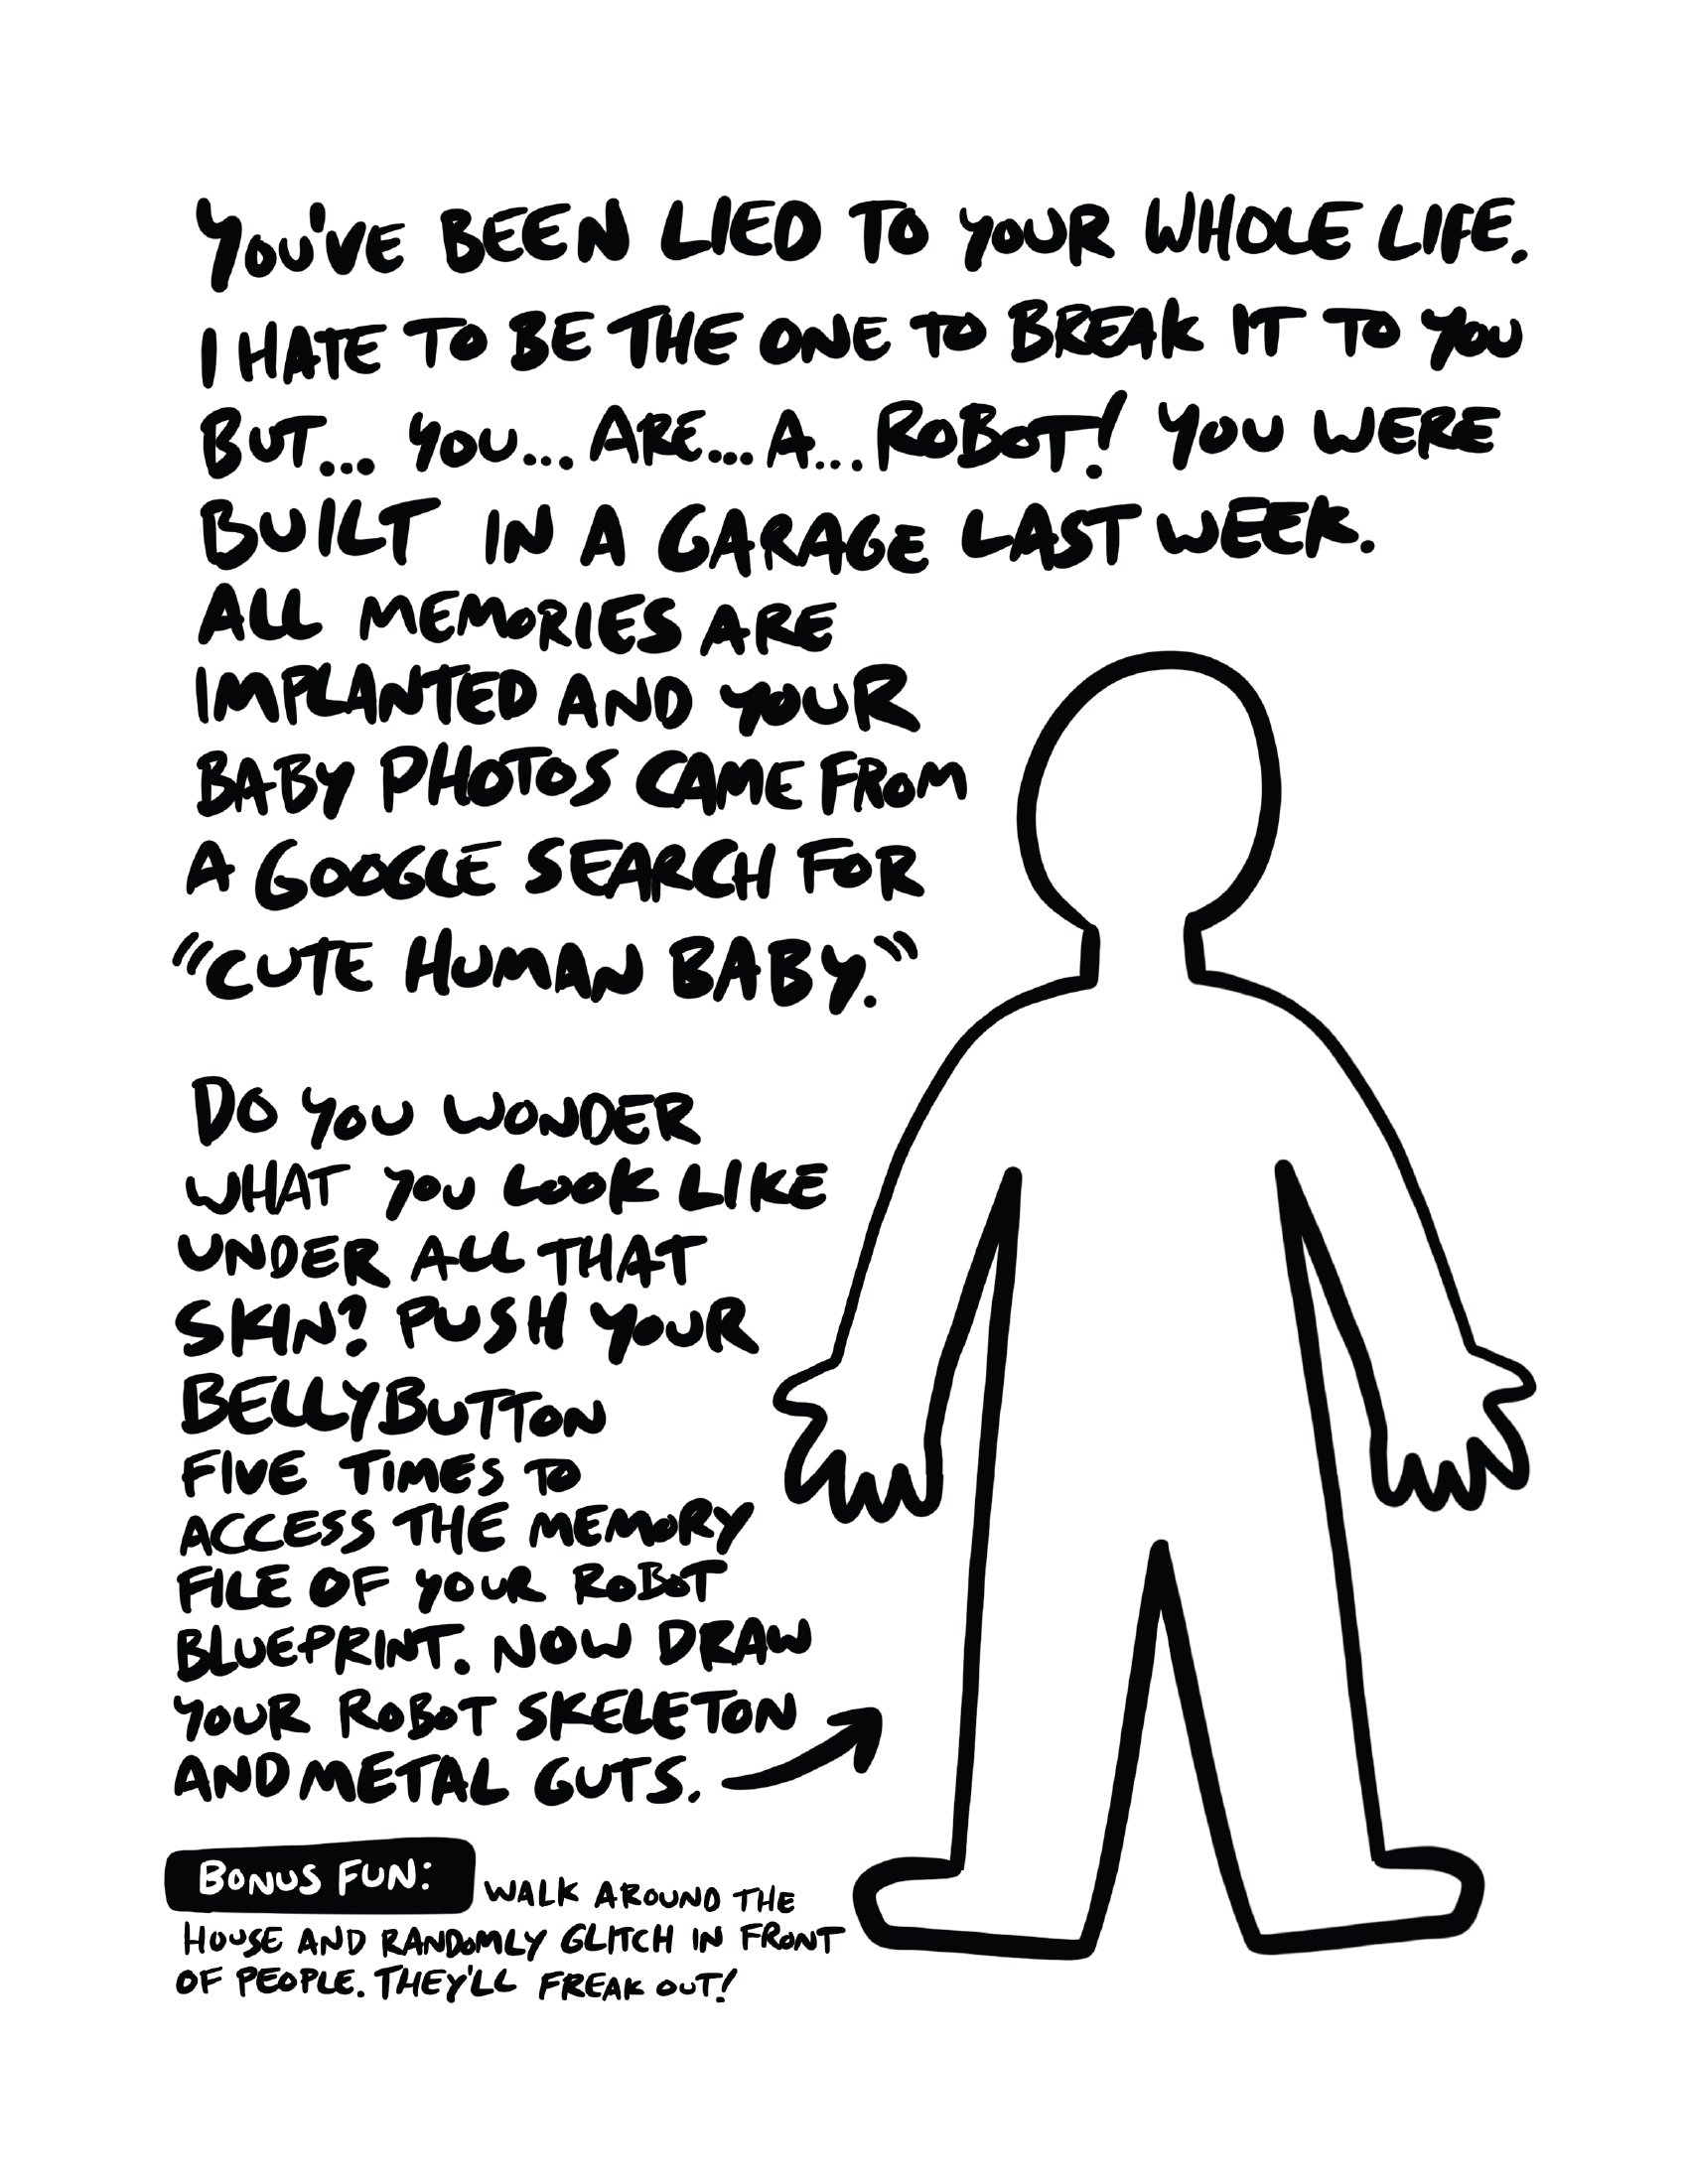 YOU'VE BEEN LIED TO YOUR WHOLE LIFE.
I HATE TO BE THE ONE TO BREAK IT TO YOU
BUT... YOU... ARE... A... ROBOT! YOU WERE
BUILT IN A GARAGE LAST WEEK.
ALL MEMORIES ARE
IMPLANTED AND YOUR
BABY PHOTOS CAME FROM
A GOOGLE SEARCH FOR
"CUTE HUMAN BABY."
DO YOU WONDER
WHAT YOU LOOK LIKE
UNDER ALL THAT
SKIN? PUSH YOUR
BELLYBUTTON
FIVE TIMES TO
ACCESS THE MEMORY
FILE OF YOUR ROBOT
BLUEPRINT. NOW DRAW
YOUR ROBOT SKELETON
AND METAL GUTS.
BONUS FUN: WALK AROUND THE
HOUSE AND RANDOMLY GLITCH IN FRONT
OF PEOPLE. THEY'LL FREAK OUT!